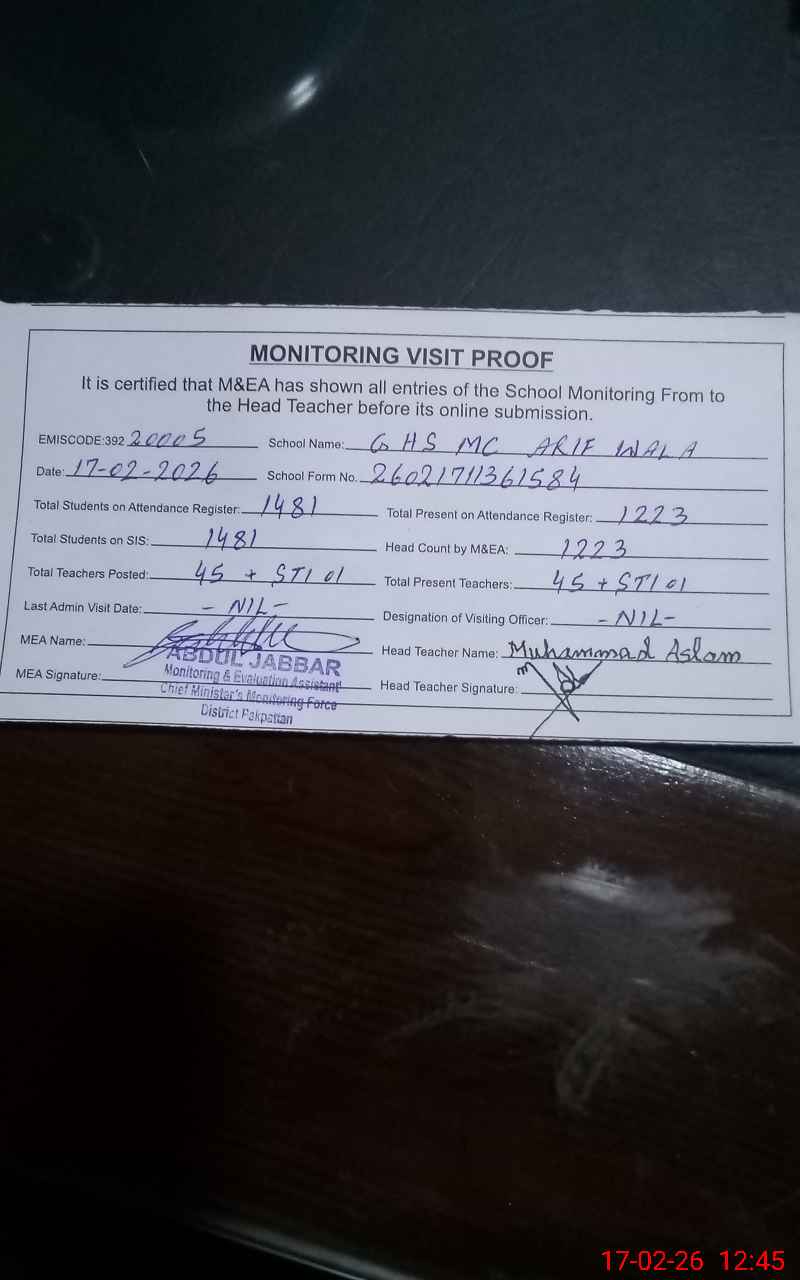 MONITORING VISIT PROOF
It is certified that M&EA has shown all entries of the School Monitoring From to
the Head Teacher before its online submission.
EMISCODE:392 20005 School Name: GHS MC ARIF WALA
Date: 17-02-2026 School Form No. 26021711361584
Total Students on Attendance Register: 1481 Total Present on Attendance Register: 1223
Total Students on SIS: 1481 Head Count by M&EA: 1223
Total Teachers Posted: 45 + STI 01 Total Present Teachers: 45 + STI 01
Last Admin Visit Date: - NIL - Designation of Visiting Officer: - NIL -
MEA Name: Head Teacher Name: Muhammad Aslam
ABDUL JABBAR
MEA Signature: Head Teacher Signature:
Monitoring & Evaluation Assistant
Chief Minister's Monitoring Force
District Pakpattan
17-02-26 12:45